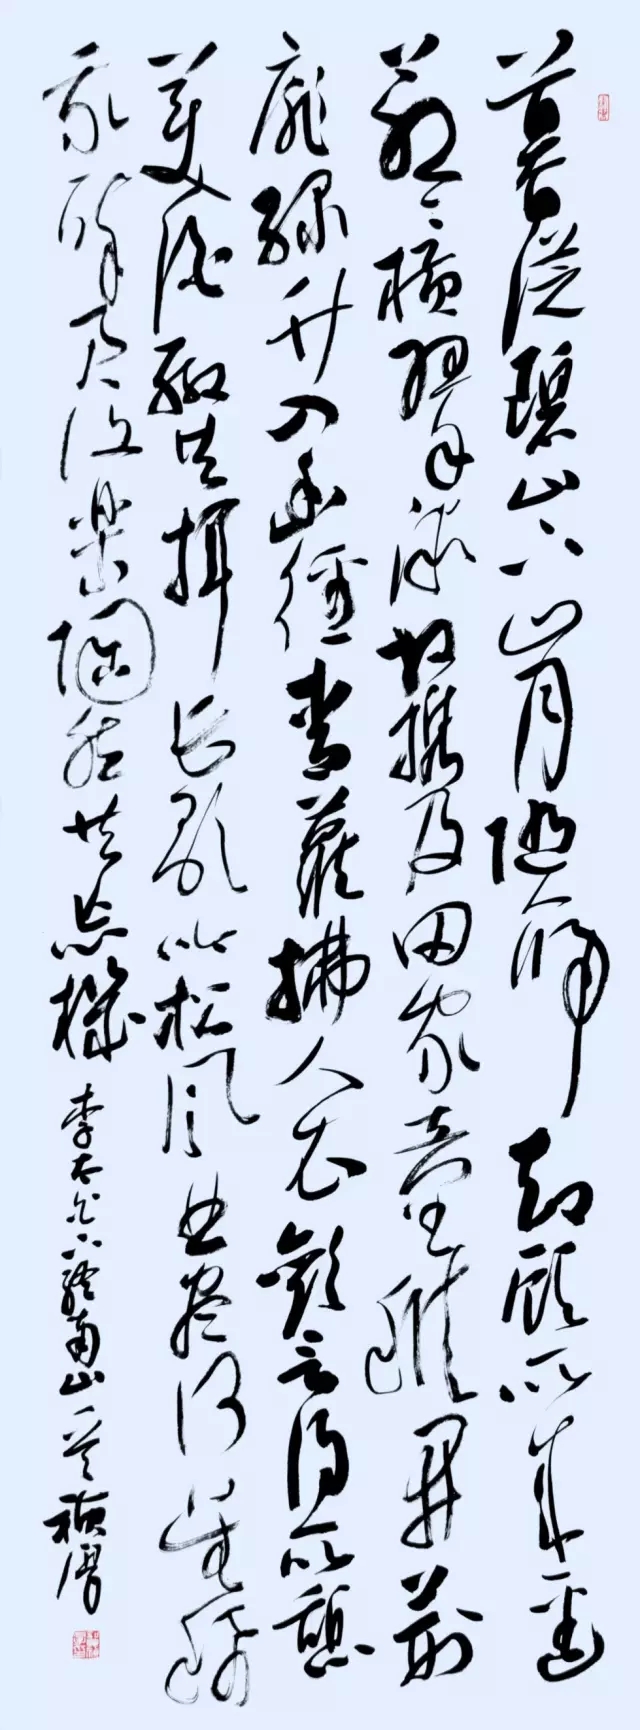 暮從碧山下山月隨人歸却顧所来徑
蒼々橫翠微相攜及田家童稚開荊
扉綠竹入幽徑青蘿拂人衣歡言得所憩
美酒聊共揮長歌吟松風曲盡河星稀
我醉君復樂陶然共忘機 李太白下終南山